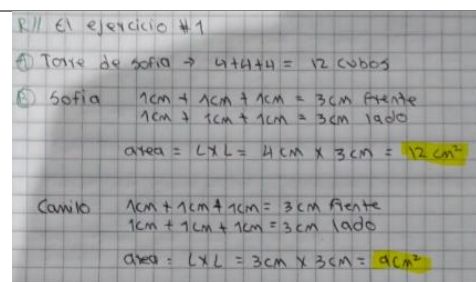 R// El ejercicio #1
A Torre de sofia → 4+4+4 = 12 cubos
Sofia 1cm + 1cm + 1cm = 3cm frente
1cm + 1cm + 1cm = 3cm lado
area = LXL = 4cm x 3cm = 12 cm²
Camilo 1cm + 1cm + 1cm = 3cm frente
1cm + 1cm + 1cm = 3cm lado
area = LXL = 3cm x 3cm = 9cm²